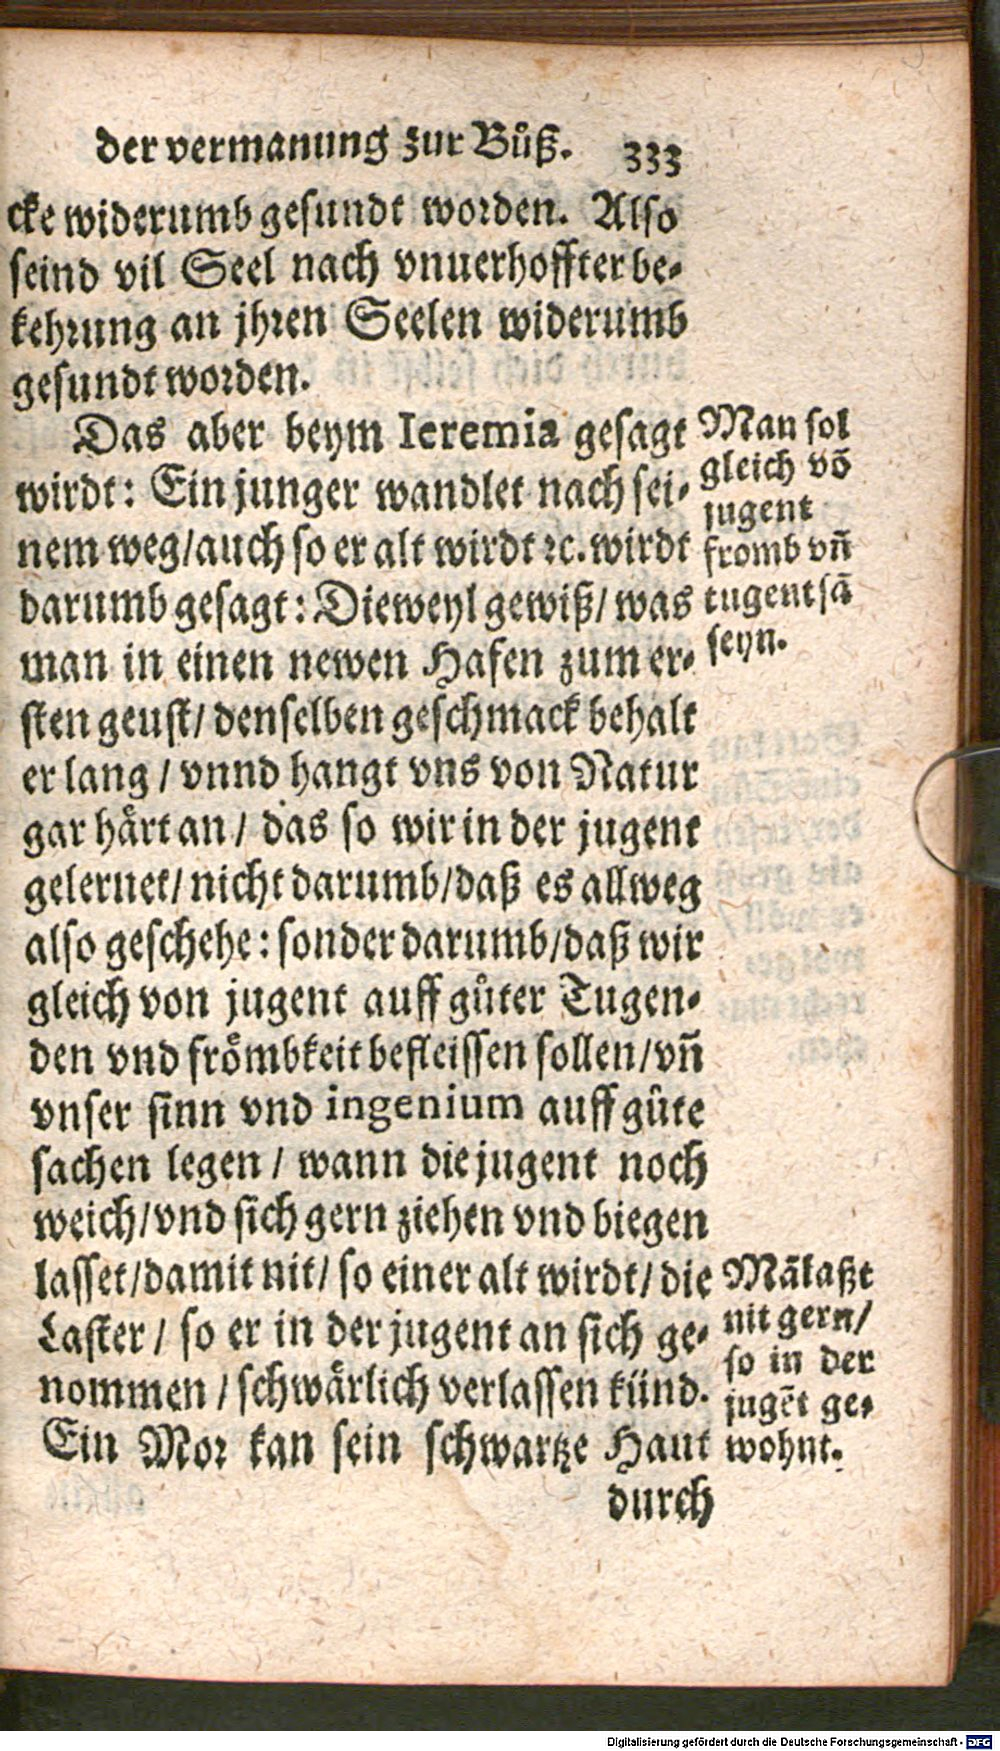 der vermanung zur Bůß. 333
cke widerumb gesundt worden. Also
seind vil Seel nach vnuerhoffter be-
kehrung an jhren Seelen widerumb
gesundt worden.
Das aber beym Ieremia gesagt
wirdt: Ein junger wandlet nach sei-
nem weg/auch so er alt wirdt ꝛc. wirdt
darumb gesagt: Dieweyl gewiß/ was
man in einen newen Hafen zum er-
sten geust/ denselben geschmack behalt
er lang / vnnd hangt vns von Natur
gar hårt an / das so wir in der jugent
gelernet/ nicht darumb/daß es allweg
also geschehe: sonder darumb/daß wir
gleich von jugent auff gůter Tugen-
den vnd frömbkeit befleissen sollen/vñ
vnser sinn vnd ingenium auff gůte
sachen legen / wann die jugent noch
weich/vnd sich gern ziehen vnd biegen
lasset/damit nit/ so einer alt wirdt/ die
Laster / so er in der jugent an sich ge-
nommen / schwärlich verlassen künd.
Ein Mor kan sein schwartze Haut
durch
Man sol
gleich võ
jugent
fromb vñ
tugentsã
seyn.
Mã laßt
nit gern/
so in der
jugẽt ge-
wohnt.
Digitalisierung gefördert durch die Deutsche Forschungsgemeinschaft - DFG